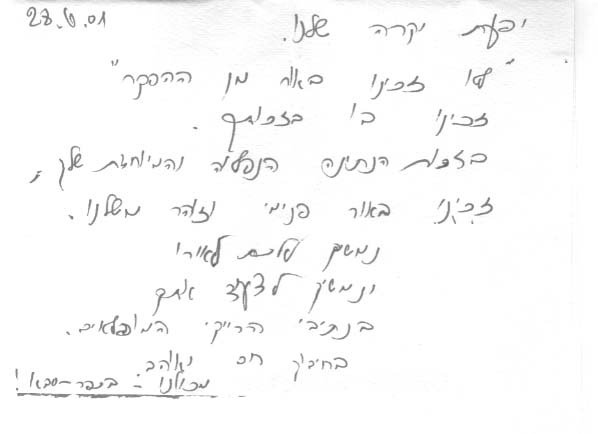 28.6.01
יפעת יקרה שלנו.
"לא זכינו באור מן ההפקר"
זכינו בו בזכותך.
בזכות הנתינה הנפלאה והמיוחדת שלך,
זכינו באור פנימי וזוהר משלנו.
נמשיך ללכת לאורו
ונמשיך לצעוד אתך
בנתיבי הרייקי המופלאים.
בחיבוק חם ואוהב
מכולנו - בכפר-סבא!